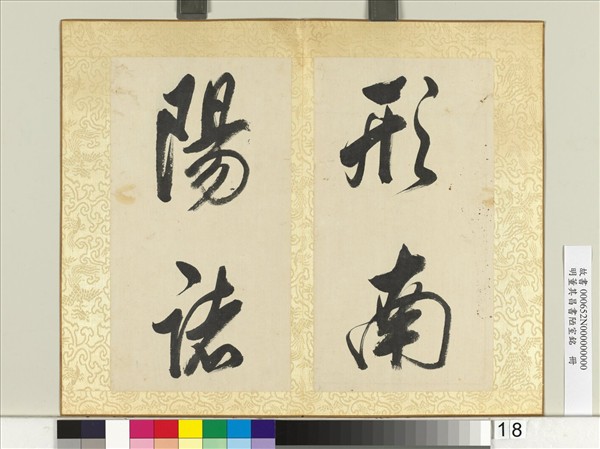 形南
陽諸
故書 000652N000000000
明董其昌書陋室銘 冊
18